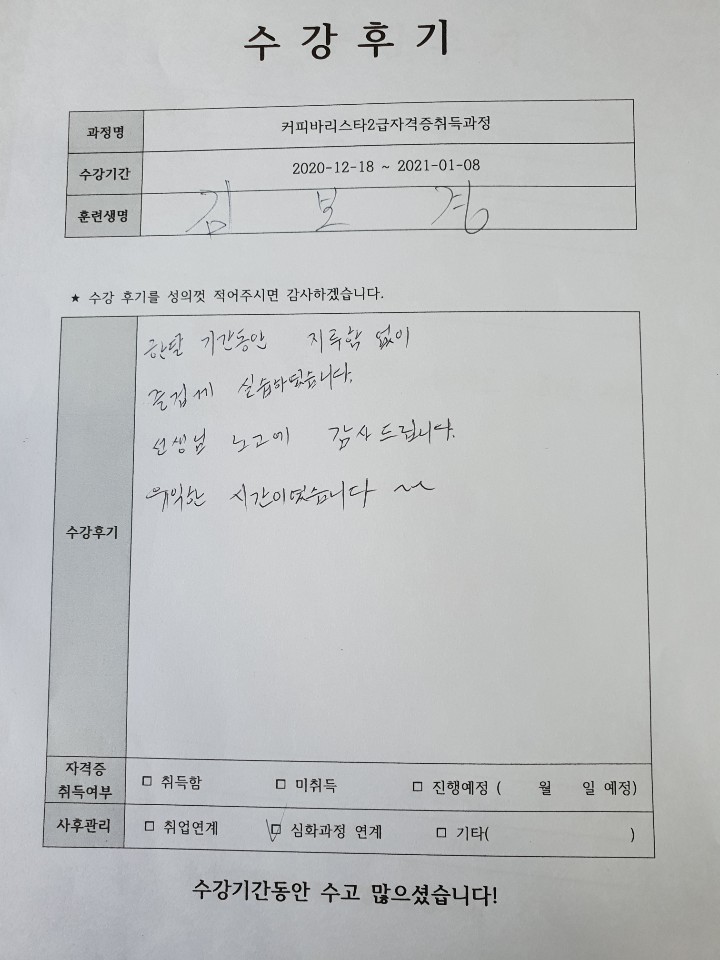 수 강 후 기
과정명 커피바리스타2급자격증취득과정
수강기간 2020-12-18 ~ 2021-01-08
훈련생명 김 보 경
★ 수강 후기를 성의껏 적어주시면 감사하겠습니다.
수강후기
한달 기간동안 지루함 없이
즐겁게 실습하였습니다.
선생님 노고에 감사드립니다.
유익한 시간이였습니다 ~
자격증
취득여부 □ 취득함 □ 미취득 □ 진행예정 ( 월 일 예정)
사후관리 □ 취업연계 ☑ 심화과정 연계 □ 기타( )
수강기간동안 수고 많으셨습니다!